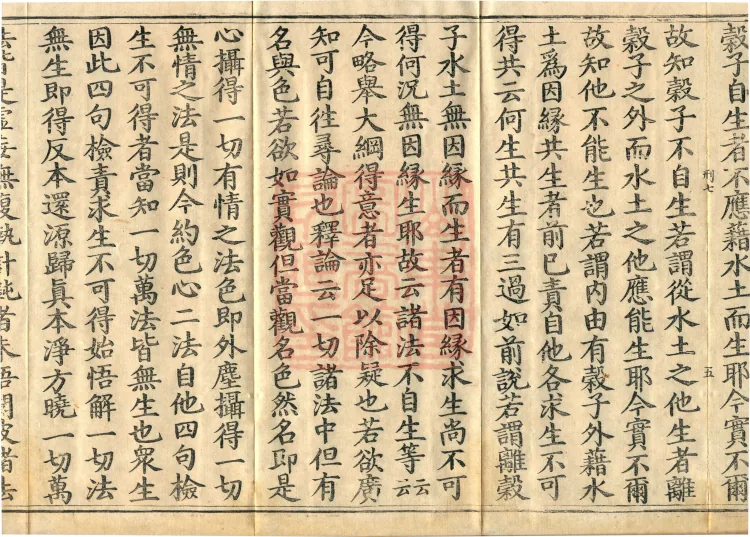 穀子自生者不應藉水土而生耶今實不爾
刑七
五
故知穀子不自生若謂從水土之他生者離
穀子之外而水土之他應能生耶今實不爾
故知他不能生也若謂内由有穀子外藉水
土爲因縁共生者前已責自他各求生不可
得共云何生共生有三過如前說若謂離穀
子水土無因縁而生者有因縁求生尚不可
得何況無因縁生耶故云諸法不自生等云云
今略舉大綱得意者亦足以除疑也若欲廣
知可自往尋論也釋論云一切諸法中但有
名與色若欲如實觀但當觀名色然名即是
心攝得一切有情之法色即外塵攝得一切
無情之法是則今約色心二法自他四句檢
生不可得者當知一切萬法皆無生也衆生
因此四句檢責求生不可得始悟解一切法
無生即得反本還源歸眞本淨方曉一切萬
法皆是虚妄無復執計鈍者未悟聞說諸法